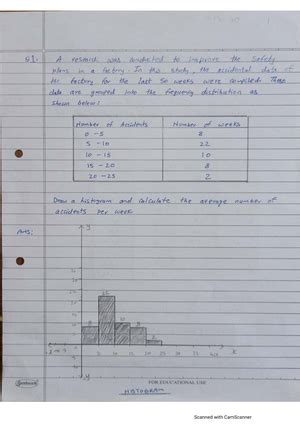 Q1. A research was conducted to improve the safety
plans in a factory. In this study, the accidental data of
the factory for the last 50 weeks were compiled. These
data are grouped into the frequency distribution as
shown below:
Number of Accidents Number of weeks
0 - 5 8
5 - 10 22
10 - 15 10
15 - 20 8
20 - 25 2
Draw a histogram and calculate the average number of
accidents per week
Ans:
y
8
10
8
5 10 15 20 25
x
y
FOR EDUCATIONAL USE
HISTOGRAM
Scanned with CamScanner